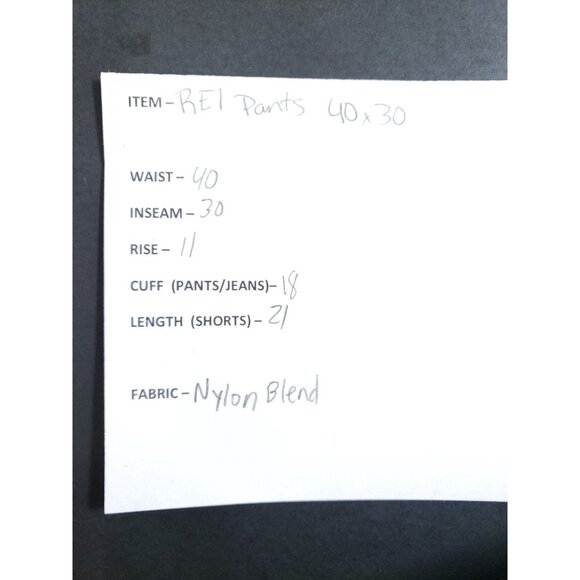 ITEM – REI Pants 40x30
WAIST – 40
INSEAM – 30
RISE – 11
CUFF (PANTS/JEANS)– 18
LENGTH (SHORTS) – 21
FABRIC – Nylon Blend